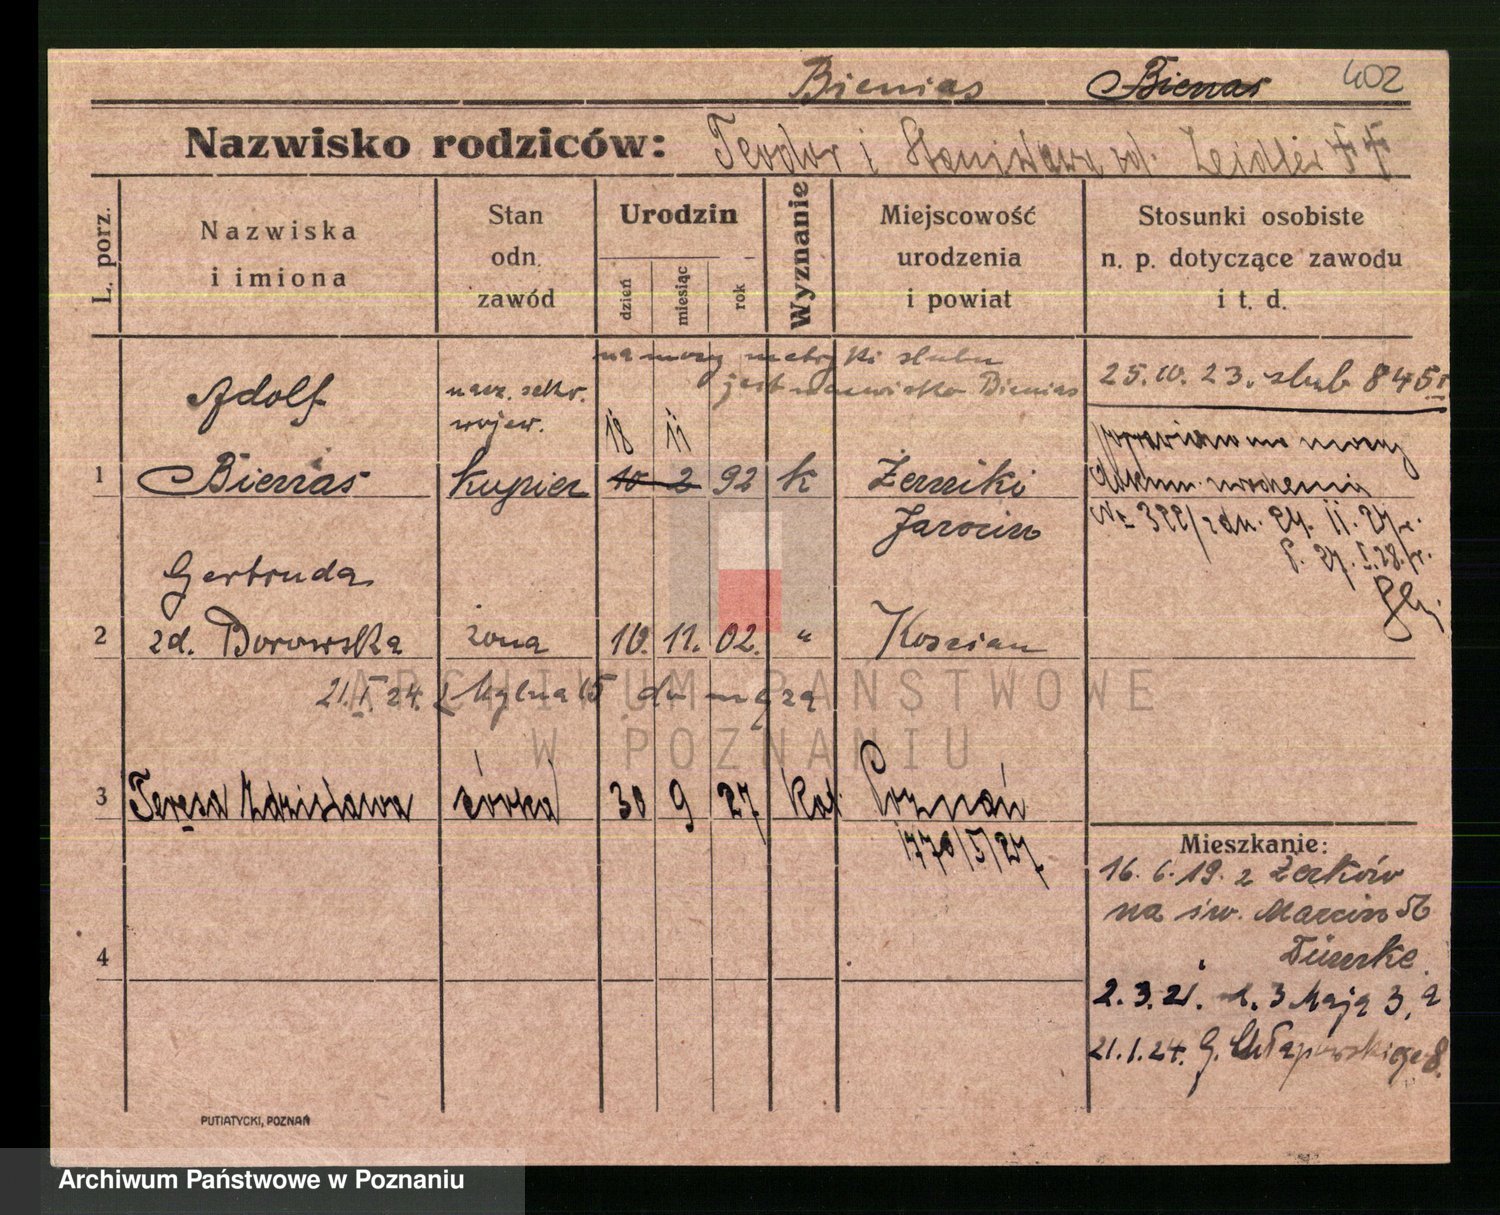 Bienias Bienas 402
Nazwisko rodziców: Teodor i Stanisława zd. Zeidler
L. porz.
Nazwiska
i imiona
Stan
odn.
zawód
Urodzin
dzień
miesiąc
rok
Wyznanie
Miejscowość
urodzenia
i powiat
Stosunki osobiste
n. p. dotyczące zawodu
i t. d.
na mocy metryki ślubu
jest nazwisko Bienias
25. 10. 23. ślub 845
Adolf
nacz. sekr.
wojew.
18 11
1 Bienas kupiec 10 2 92 k Żerniki
Jarocin
poprawiono na mocy
dokum. urodzenia
Nr 322/ z dn. 24. 11. 27 r.
P. 27. I. 28. r.
Gertruda
2 zd. Borowska żona 10. 11. 02. " Kościan
21. I. 24. z Młyna 15 do męża
3 Teresa Zdzisława córka 30 9 27 Kat. Poznań
1770/5/27
4
Mieszkanie:
16. 6. 19. z Żerków
na św. Marcin 56
2. 3. 21. ul. 3 Maja 3, a
21. 1. 24. G. Chłapowskiego 8.
PUTIATYCKI, POZNAŃ
ARCHIWUM PAŃSTWOWE
W POZNANIU
Archiwum Państwowe w Poznaniu